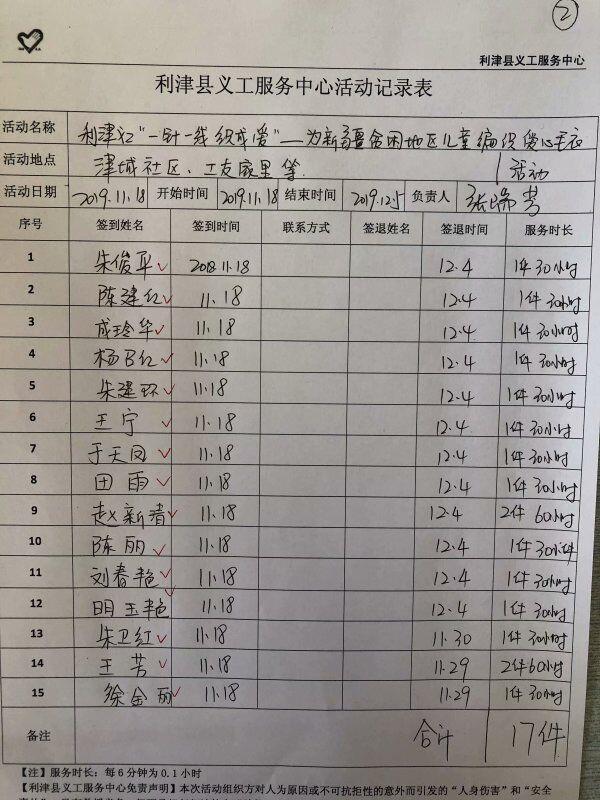 ②
利津县义工服务中心
利津县义工服务中心活动记录表
活动名称 利津义工"一针一线织成爱"—为新疆贫困地区儿童编织爱心毛衣
活动地点 津城社区、工友家里等 活动
活动日期 2019.11.18 开始时间 2019.11.18 结束时间 2019.12.5 负责人 张瑞芳
序号 签到姓名 签到时间 联系方式 签退姓名 签退时间 服务时长
1 朱俊平 2018.11.18 12.4 1件30小时
2 陈建红 11.18 12.4 1件30小时
3 成玲华 11.18 12.4 1件30小时
4 杨红 11.18 12.4 1件30小时
5 朱建环 11.18 12.4 1件30小时
6 王宁 11.18 12.4 1件30小时
7 于天凤 11.18 12.4 1件30小时
8 田雨 11.18 12.4 1件30小时
9 赵新清 11.18 12.4 2件60小时
10 陈丽 11.18 12.4 1件30小件
11 刘春艳 11.18 12.4 1件30小时
12 明玉艳 11.18 12.4 1件30小时
13 朱卫红 11.18 11.30 1件30小时
14 王芳 11.18 11.29 2件60小时
15 徐金丽 11.18 11.29 1件30小时
备注 合计 17件
【注】服务时长：每6分钟为0.1小时
【利津县义工服务中心免责声明】本次活动组织方对人为原因或不可抗拒性的意外而引发的"人身伤害"和"安全